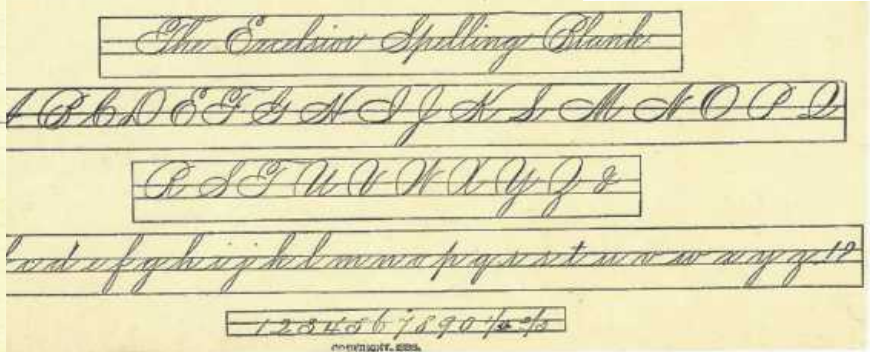 The Excelsior Spelling Blank
A B C D E F G H I J K L M N O P Q
R S T U V W X Y Z &
c d e f g h i j k l m n o p q r s t u v w x y z . ! ?
1 2 3 4 5 6 7 8 9 0
COPYRIGHT,